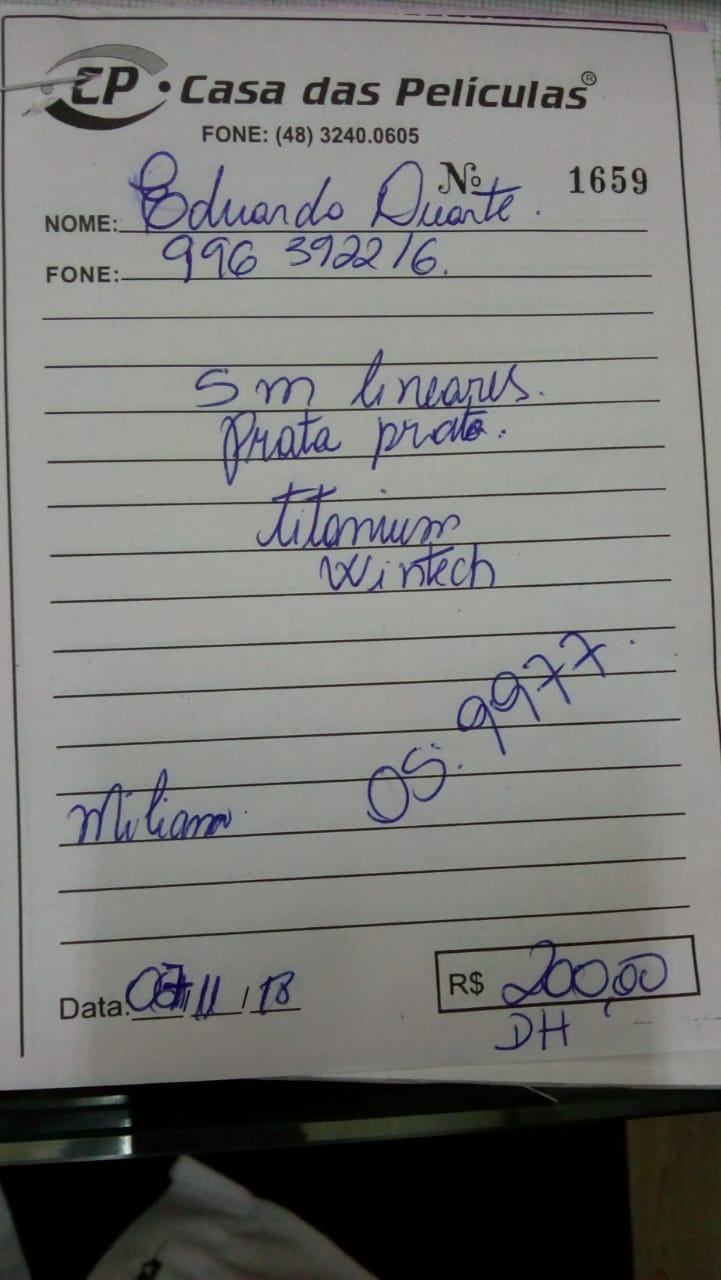 CP · Casa das Películas®
FONE: (48) 3240.0605
Nº 1659
NOME: Eduardo Duarte.
FONE: 996 392216.
5 m lineares.
Prata prata.
titanium
Wintech
OS. 9977.
Miliana
Data: 07/11/18
R$ 200,00
DH